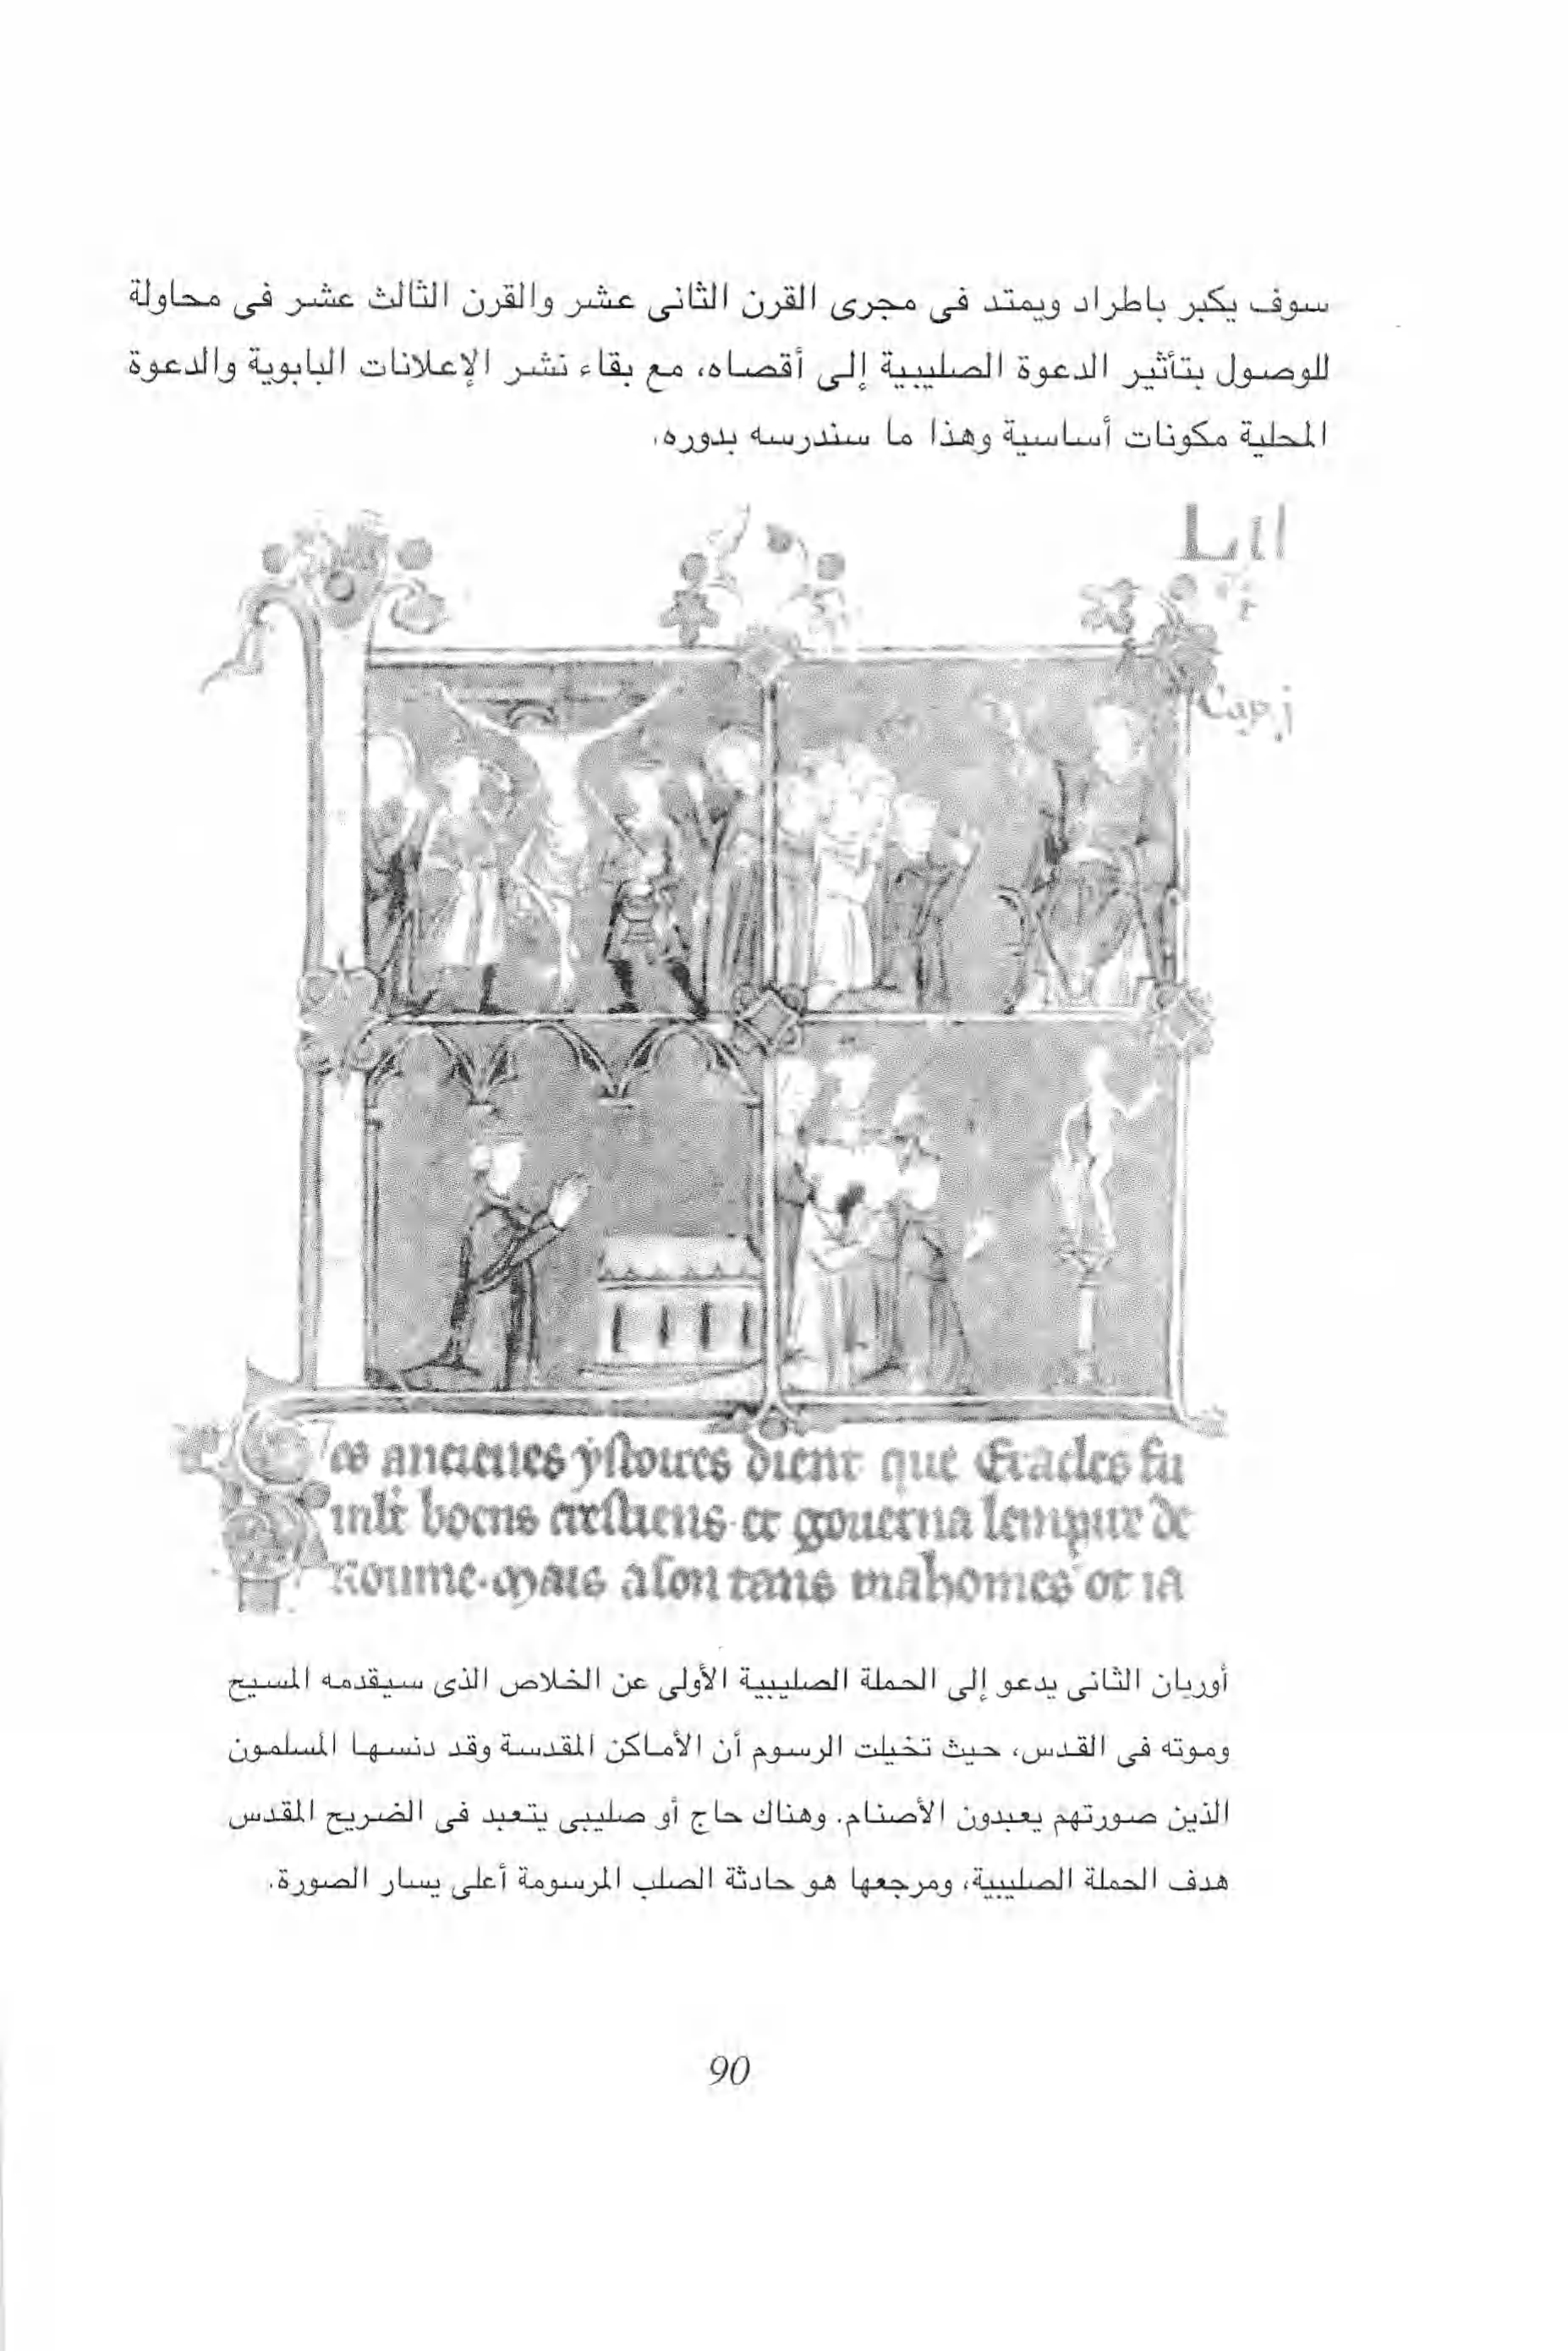 سوف يكبر باطراد ويمتد فى مجرى القرن الثانى عشر والقرن الثالث عشر فى محاولة
للوصول بتأثير الدعوة الصليبية إلى أقصاه، مع بقاء نشر الإعلانات البابوية والدعوة
المحلية مكونات أساسية وهذا ما سندرسه بدوره.
Cap. j
es ancienes ystoires dient que Eracles fu
mlt boens crestiens. et gouerna lempire de
Roume. Mais a son tans mahomes ot ia
أوربان الثانى يدعو إلى الحملة الصليبية الأولى عن الخلاص الذى سيقدمه المسيح
وموته فى القدس، حيث تخيلت الرسوم أن الأماكن المقدسة وقد دنسها المسلمون
الذين صورتهم يعبدون الأصنام. وهناك حاج أو صليبى يتعبد فى الضريح المقدس
هدف الحملة الصليبية، ومرجعها هو حادثة الصلب المرسومة أعلى يسار الصورة.
90